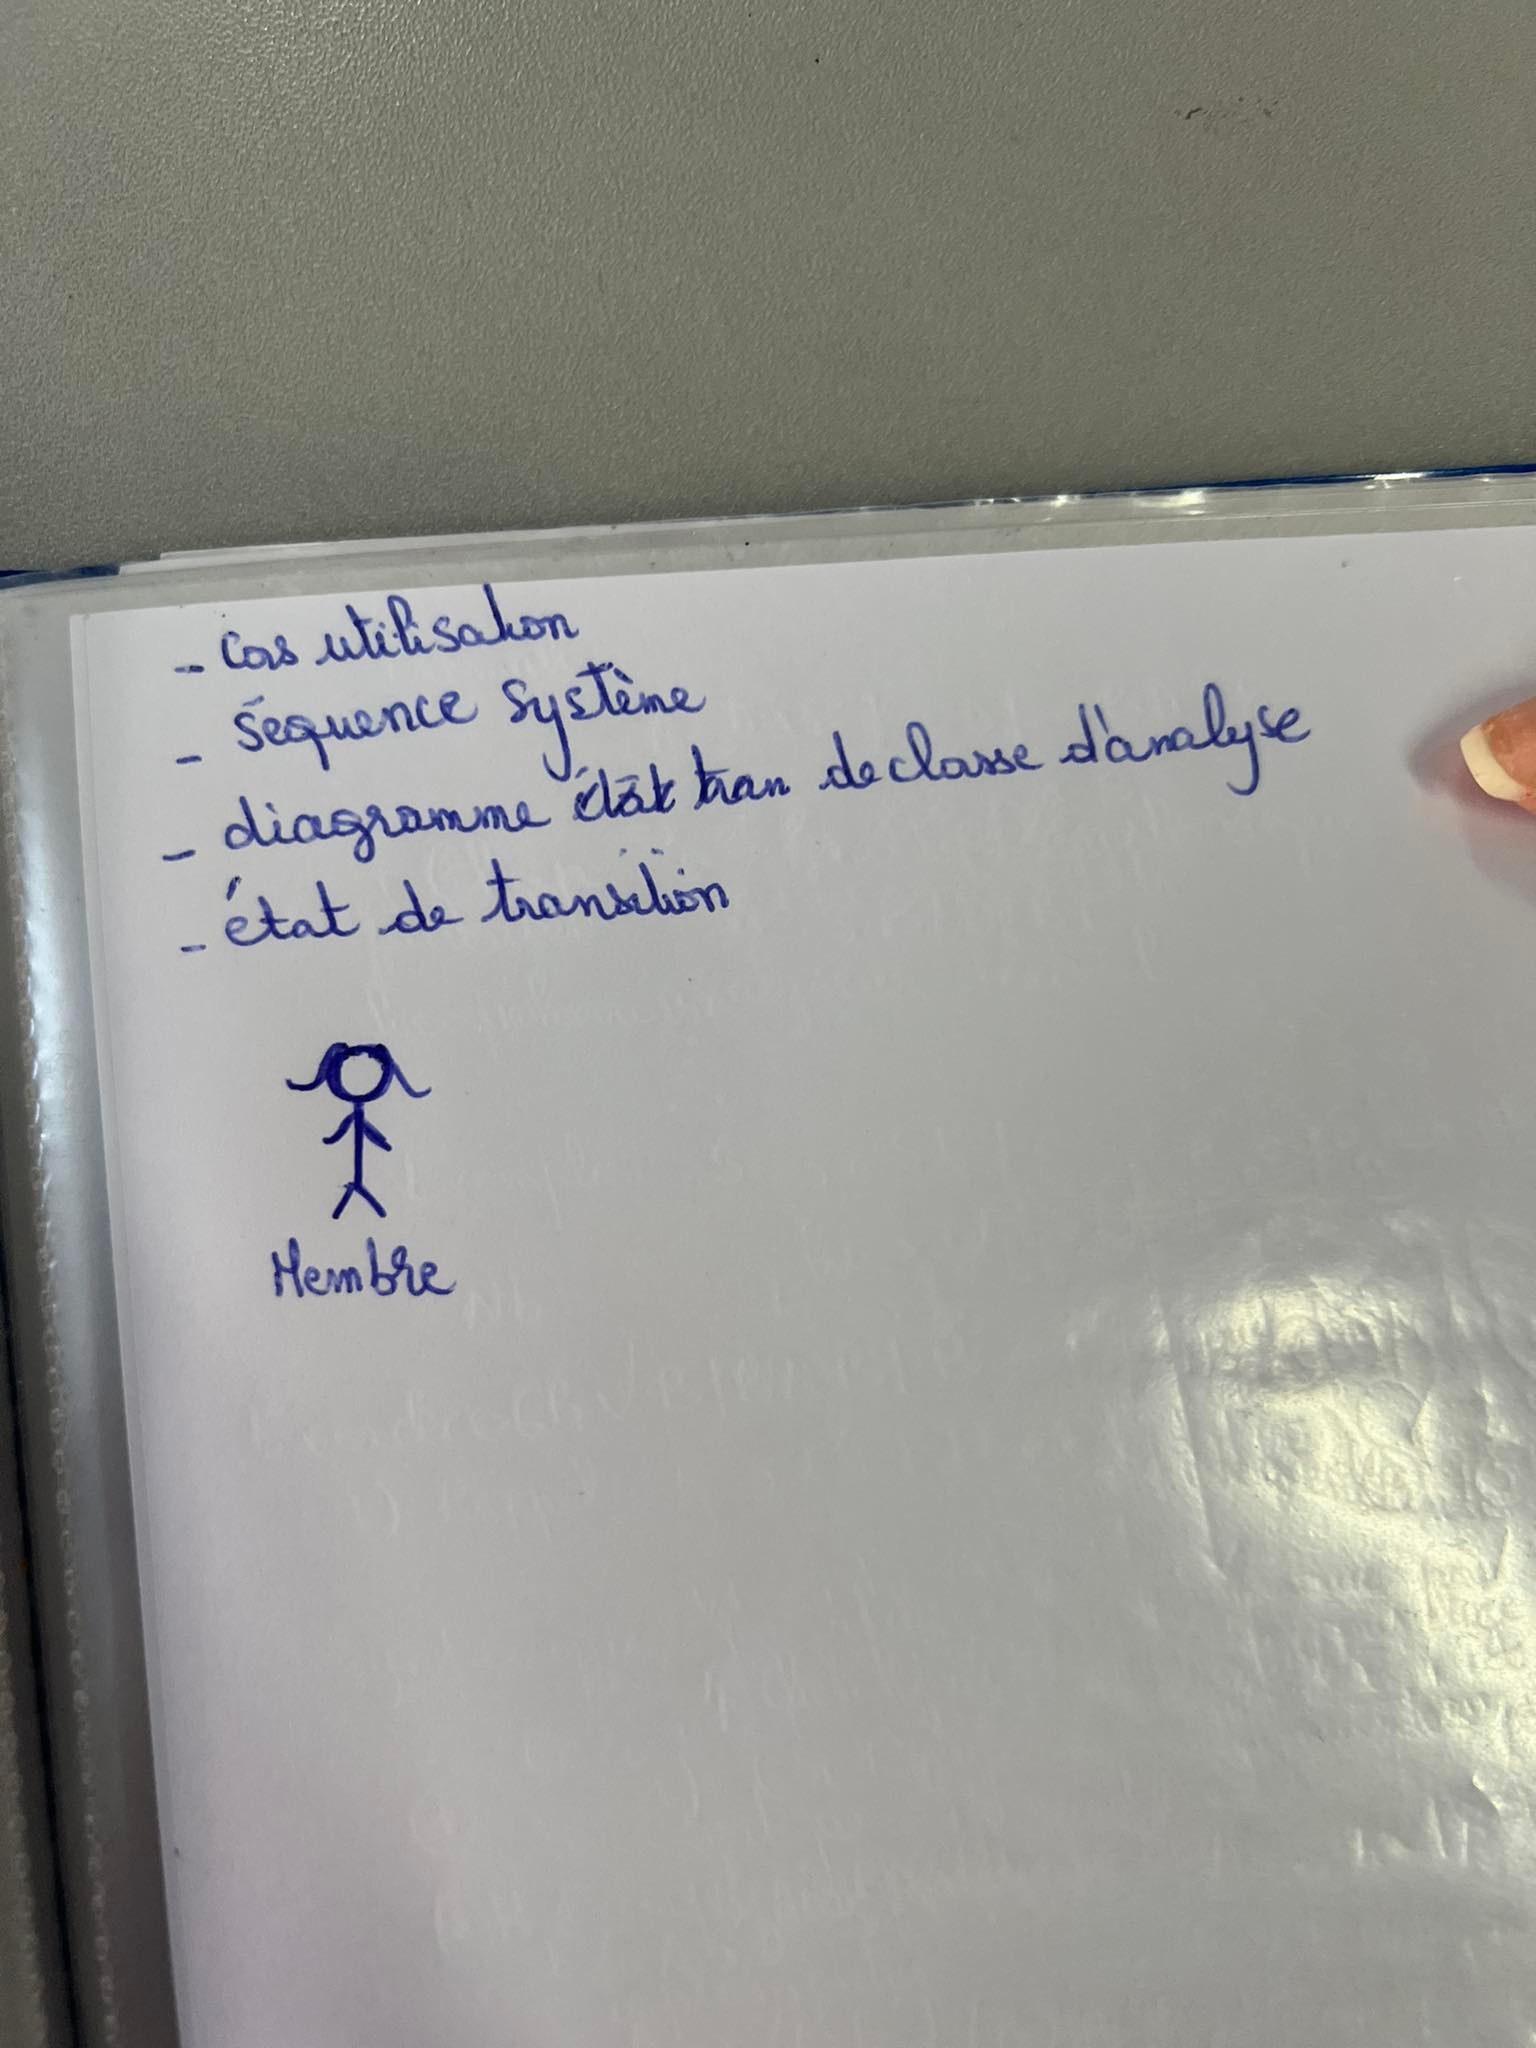 - Cas utilisation
- Séquence Système
- diagramme état tran de classe d'analyse
- état de transition
Membre